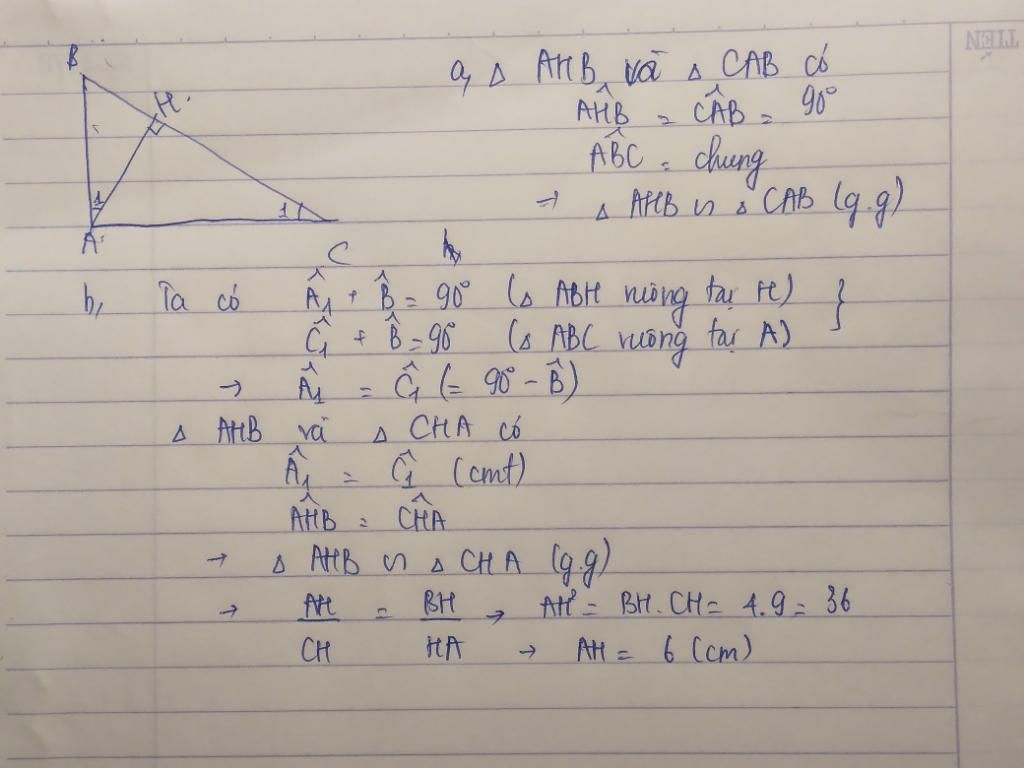 TIẾN
B
H
1
1
A
C
a, △ AHB và △ CAB có
AĤB = CÂB = 90°
AB̂C = chung
→ △ AHB ∽ △ CAB (g.g)
b, Ta có Â₁ + B̂ = 90° (△ ABH vuông tại H) }
Ĉ₁ + B̂ = 90° (△ ABC vuông tại A)
→ Â₁ = Ĉ₁ (= 90° - B̂)
△ AHB và △ CHA có
Â₁ = Ĉ₁ (cmt)
AĤB = CĤA
→ △ AHB ∽ △ CHA (g.g)
→ AH/CH = BH/HA → AH² = BH.CH = 4.9 = 36
→ AH = 6 (cm)